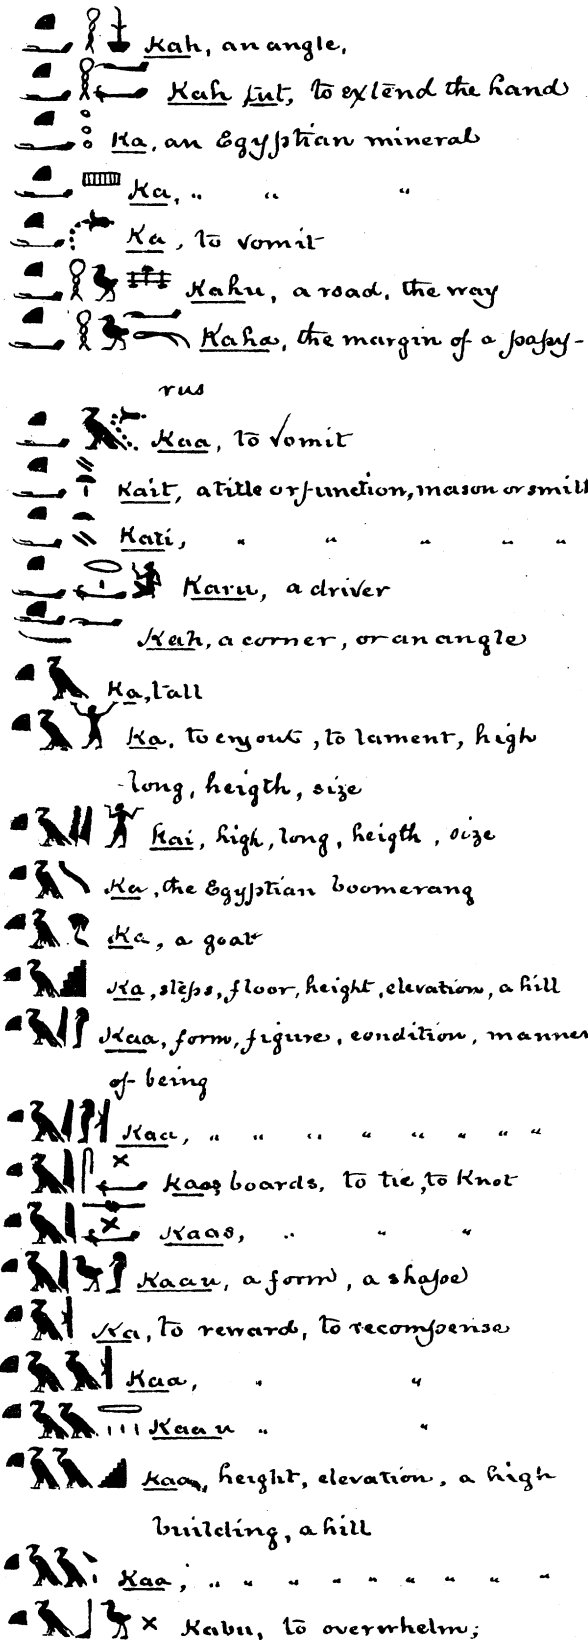 Kah, an angle,
Kah tut, to extend the hand
Ka, an Egyptian mineral
Ka, " " "
Ka, to vomit
Kahu, a road, the way
Kaha, the margin of a papy-
rus
Kaa, to vomit
Kait, a title or function, mason or smith
Kati, " " " " "
Karu, a driver
Kah, a corner, or an angle
Ka, tall
Ka, to cry out, to lament, high
long, heigth, size
Kai, high, long, heigth, size
Ka, the Egyptian boomerang
Ka, a goat
Ka, steps, floor, height, elevation, a hill
Kaa, form, figure, condition, manner
of being
Kaa, " " " " " " " "
Kaas boards, to tie, to Knot
Kaas, " " "
Kaau, a form, a shape
Ka, to reward, to recompense
Kaa, " "
Kaau " "
Kaa, height, elevation, a high
building, a hill
Kaa, " " " " " " " " "
Kabu, to overwhelm;